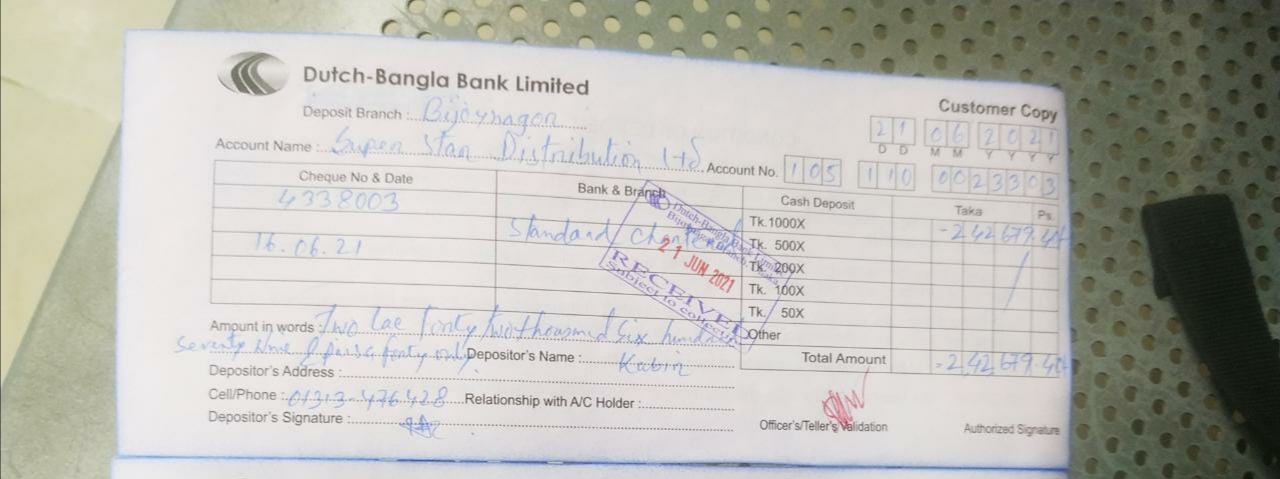 Dutch-Bangla Bank Limited
Customer Copy
Deposit Branch : Bijoynagor
21 06 2021
D D M M Y Y Y Y
Account Name : Super Star Distribution Ltd Account No. 105 110 0023303
Cheque No & Date Bank & Branch Cash Deposit Taka Ps.
4338003 Tk.1000X -2,42,679.40/
Standard Chartered Tk. 500X
16.06.21 Tk. 200X
Tk. 100X
Tk. 50X
Other
Dutch-Bangla Bank Limited
Bijoynagar Branch, Dhaka
21 JUN 2021
RECEIVED
Subject to collection
Amount in words : Two lac forty two thousand six hundred
Seventy Nine & paisa forty only
Total Amount =2,42,679.40/
Depositor's Name : Kabir
Depositor's Address :
Cell/Phone : 01313-476428 Relationship with A/C Holder :
Depositor's Signature :
Officer's/Teller's Validation Authorized Signature